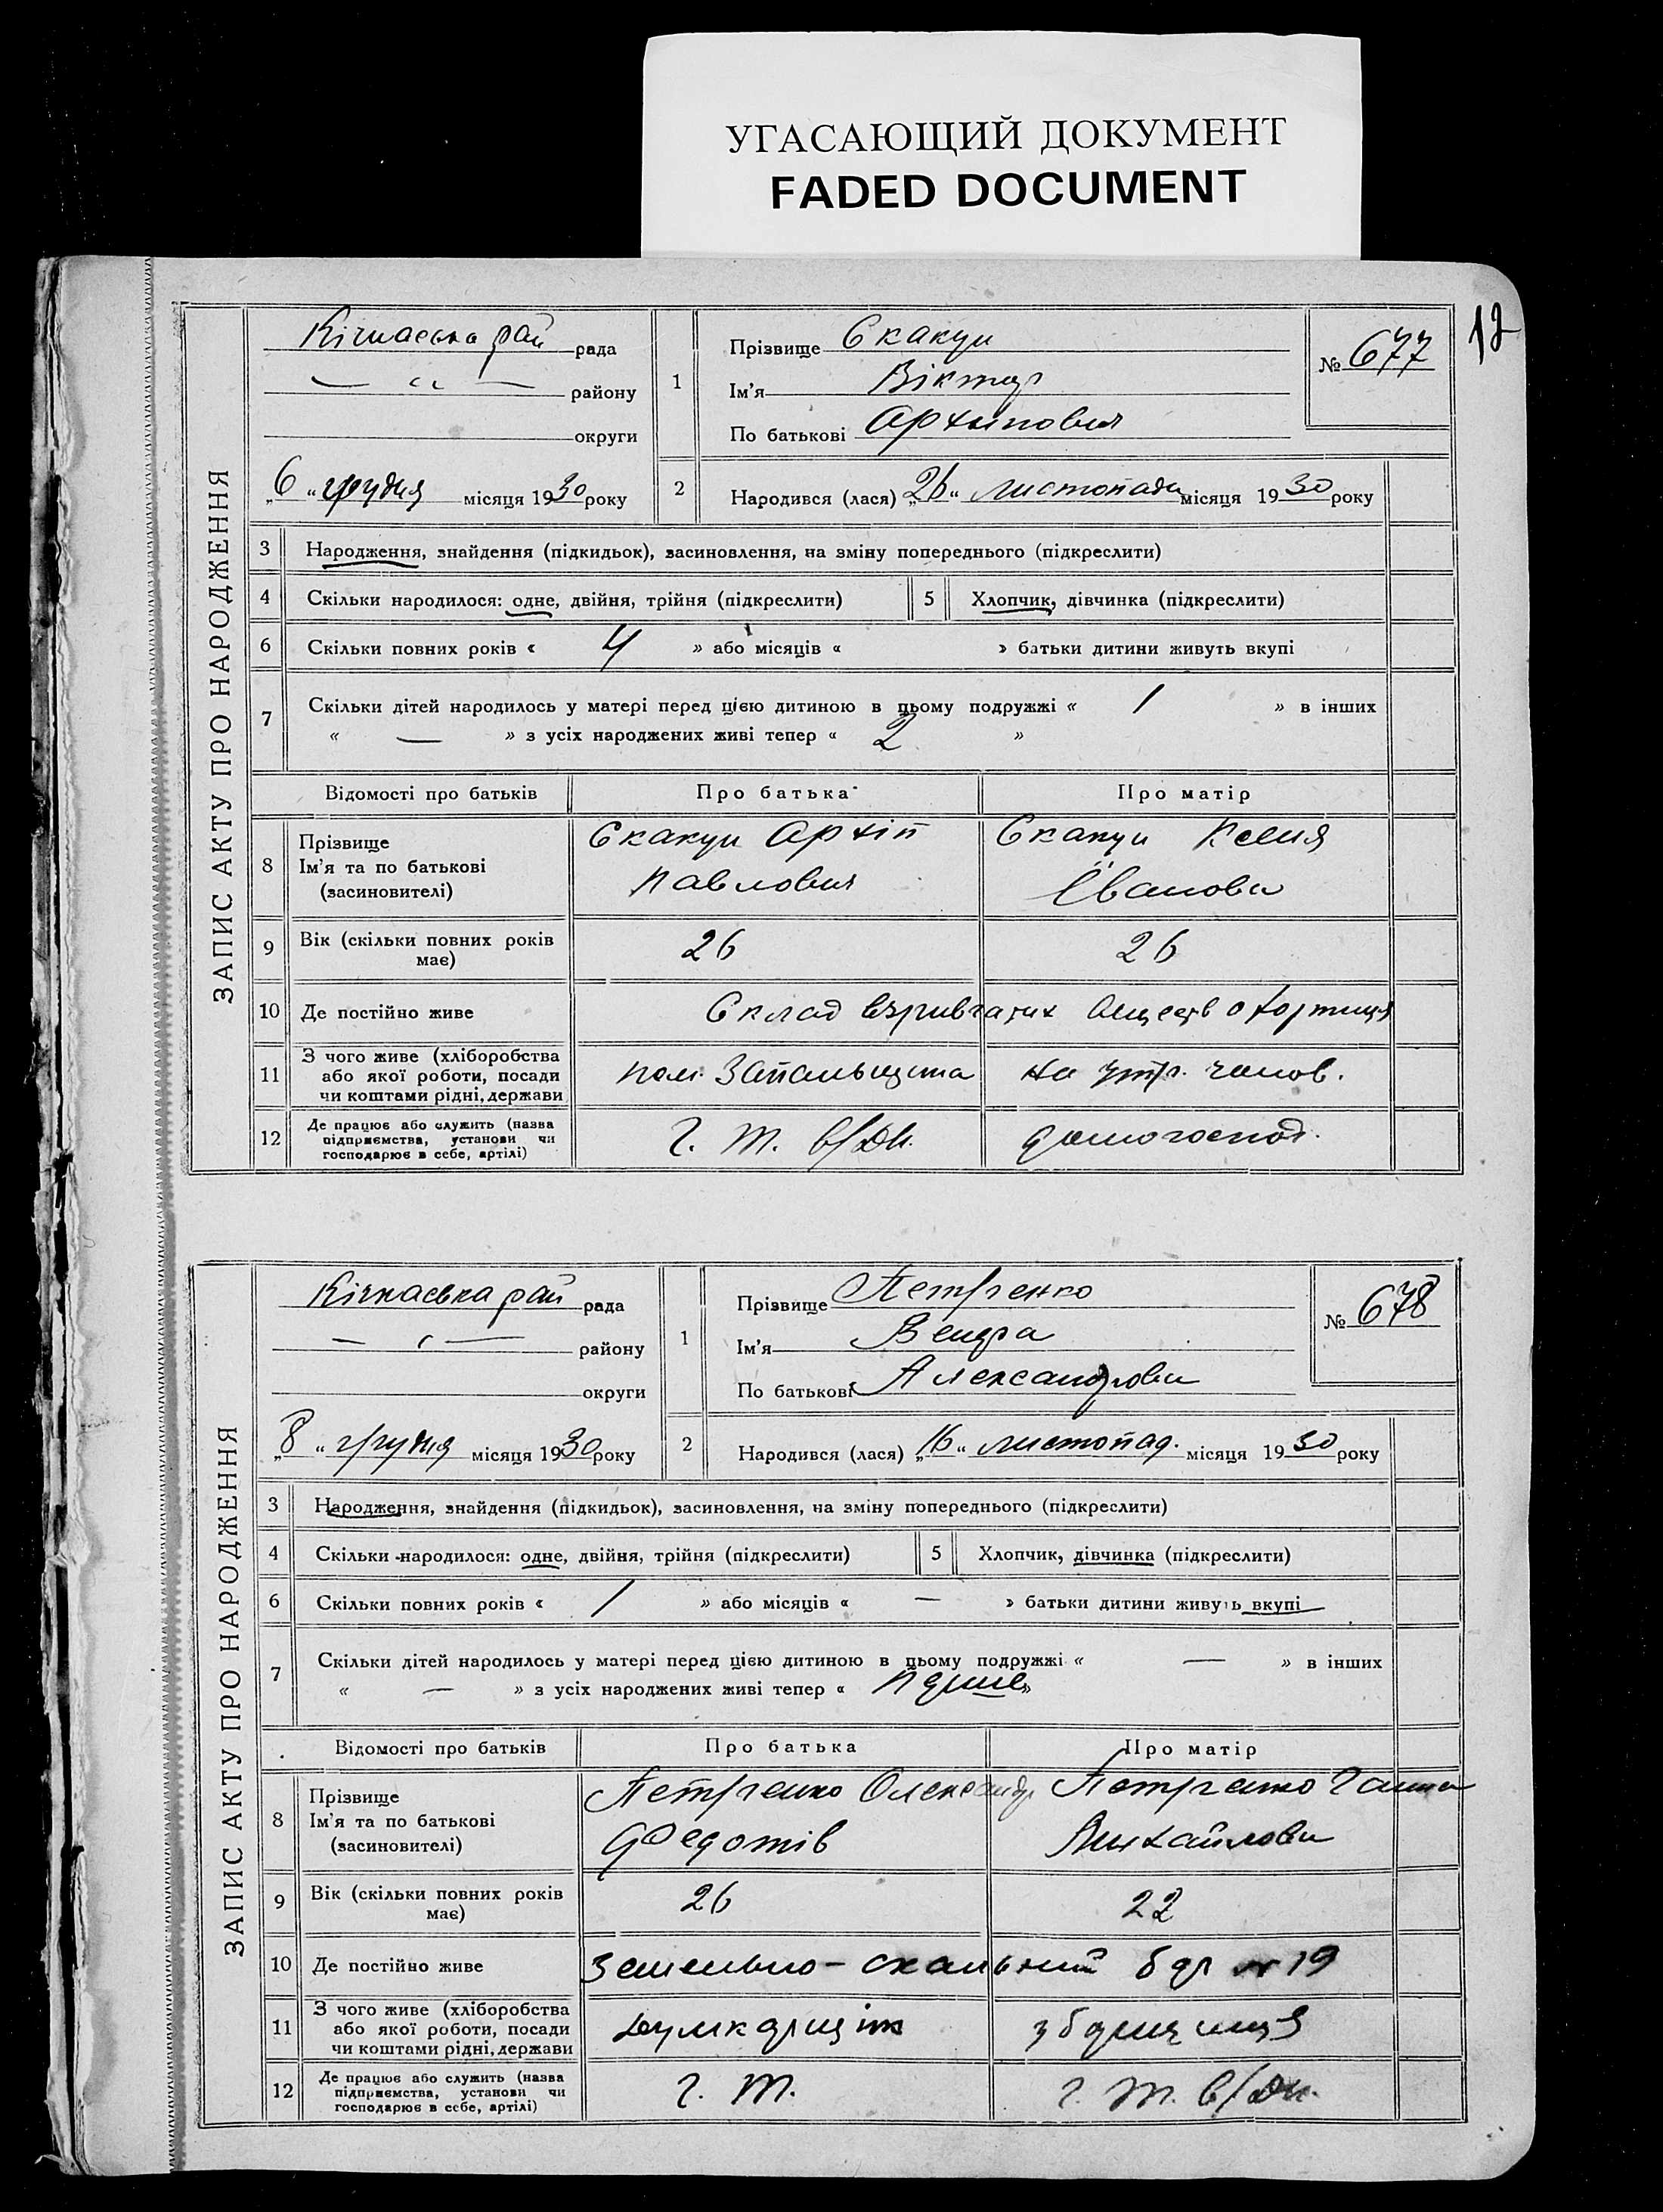 УГАСАЮЩИЙ ДОКУМЕНТ
FADED DOCUMENT
12
ЗАПИС АКТУ ПРО НАРОДЖЕННЯ
Кічкаська рай рада
— „ — району
округи
„6“ грудня місяця 1930 року
1 Прізвище Скакун
Ім'я Віктор
По батькові Архипович
№ 677
2 Народився (лася) „26“ Листопада місяця 1930 року
3 Народження, знайдення (підкидьок), засиновлення, на зміну попереднього (підкреслити)
4 Скільки народилося: одне, двійня, трійня (підкреслити) 5 Хлопчик, дівчинка (підкреслити)
6 Скільки повних років « 4 » або місяців « » батьки дитини живуть вкупі
7 Скільки дітей народилось у матері перед цією дитиною в цьому подружжі « 1 » в інших
« — » з усіх народжених живі тепер « 2 »
Відомості про батьків Про батька Про матір
8 Прізвище Ім'я та по батькові (засновителі) Скакун Архіп Скакун Ксенія
Павлович Івановн
9 Вік (скільки повних років має) 26 26
10 Де постійно живе Склад взривчатих веществ о Хортиця
11 З чого живе (хліборобства або якої роботи, посади чи коштами рідні, держави пом. Запальщика на утр. чолов.
12 Де працює або служить (назва підприємства, установи чи господарює в себе, артілі) Г. Т. в/Дн. домогоспод.
ЗАПИС АКТУ ПРО НАРОДЖЕННЯ
Кічкаська рай рада
— „ — району
округи
„8“ грудня місяця 1930 року
1 Прізвище Петренко
Ім'я
По батькові Александровн
№ 678
2 Народився (лася) „16“ листопад. місяця 1930 року
3 Народження, знайдення (підкидьок), засиновлення, на зміну попереднього (підкреслити)
4 Скільки народилося: одне, двійня, трійня (підкреслити) 5 Хлопчик, дівчинка (підкреслити)
6 Скільки повних років « 1 » або місяців « — » батьки дитини живуть вкупі
7 Скільки дітей народилось у матері перед цією дитиною в цьому подружжі « — » в інших
« — » з усіх народжених живі тепер « перше »
Відомості про батьків Про батька Про матір
8 Прізвище Ім'я та по батькові (засиновителі) Петренко Олександр Петренко Ганна
Федотів Михайловн
9 Вік (скільки повних років має) 26 22
10 Де постійно живе Земельно-скальний бар № 19
11 З чого живе (хліборобства або якої роботи, посади чи коштами рідні, держави
12 Де працює або служить (назва підприємства, установи чи господарює в себе, артілі) Г. Т. Г. Т. в/Дн.